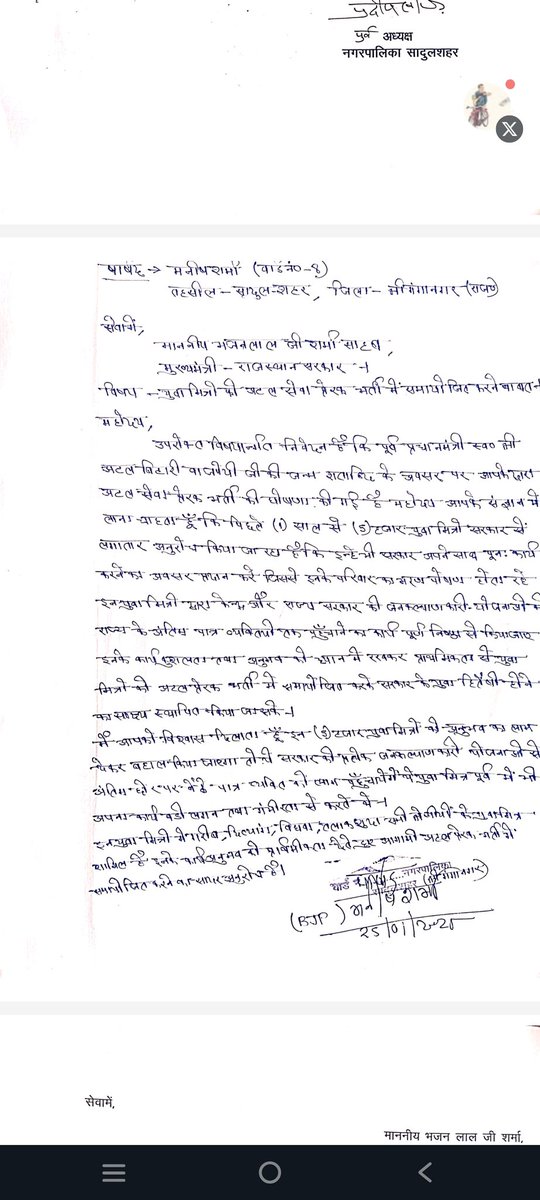 पूर्व अध्यक्ष
नगरपालिका सादुलशहर
पार्षद → मनीष शर्मा (वार्ड नं०-8)
तहसील - सादुल-शहर, जिला - श्रीगंगानगर (राज०)
सेवामें,
माननीय भजनलाल जी शर्मा साहब,
मुख्यमंत्री - राजस्थान सरकार ।
विषय - युवा मित्रों को अटल सेवा प्रेरक भर्ती में समायोजित करने बाबत
महोदय,
उपरोक्त विषयान्तर्गत निवेदन है कि पूर्व प्रधानमंत्री स्व० श्री
अटल बिहारी वाजपेयी जी की जन्म शताब्दि के अवसर पर आपके द्वारा
अटल सेवा प्रेरक भर्ती की घोषणा की गई है महोदय आपके संज्ञान में
लाना चाहता हूँ कि पिछले (1) साल से (5) हजार युवा मित्रों सरकार से
लगातार अनुरोध किया जा रहा है कि इन्हे भी सरकार अपने साथ पुनः कार्य
करने का अवसर प्रदान करें जिससे इनके परिवार का भरण पोषण होता रहे
इन युवा मित्रों द्वारा केन्द्र और राज्य सरकार की जनकल्याणकारी योजनाओं को
राज्य के अंतिम पात्र व्यक्तियों तक पहुँचाने का कार्य पूर्ण निष्ठा से किया जाए
इनके कार्य कुशलता तथा अनुभव को ध्यान में रखकर प्राथमिकता से युवा
मित्रों को अटल प्रेरक भर्ती में समायोजित करके सरकार के युवा हितैषी होने
का साक्ष्य स्थापित किया जा सके ।
मैं आपको विश्वास दिलाता हूँ इन (5) हजार युवा मित्रों को अनुभव का लाभ
देकर बहाल किया जाएगा तो ये सरकार की प्रत्येक जनकल्याणकारी योजनाओं से
अंतिम छोर पर बैठे पात्र व्यक्ति को लाभ पहुँचायेंगे ये युवा मित्र पूर्व में भी
अपना कार्य बड़ी लगन तथा गंभीरता से करते थे ।
इन युवा मित्रों में गरीब, दिव्यांग, विधवा, तलाकशुदा सभी श्रेणीयों के युवा मित्र
शामिल है इनके कार्य अनुभव को प्राथमिकता देते हुए आगामी अटल प्रेरक भर्ती में
समायोजित करने का सादर अनुरोध है।
वार्ड नगरपालिका
(श्रीगंगानगर)
(BJP) मनीष शर्मा
सेवामें,
माननीय भजन लाल जी शर्मा,